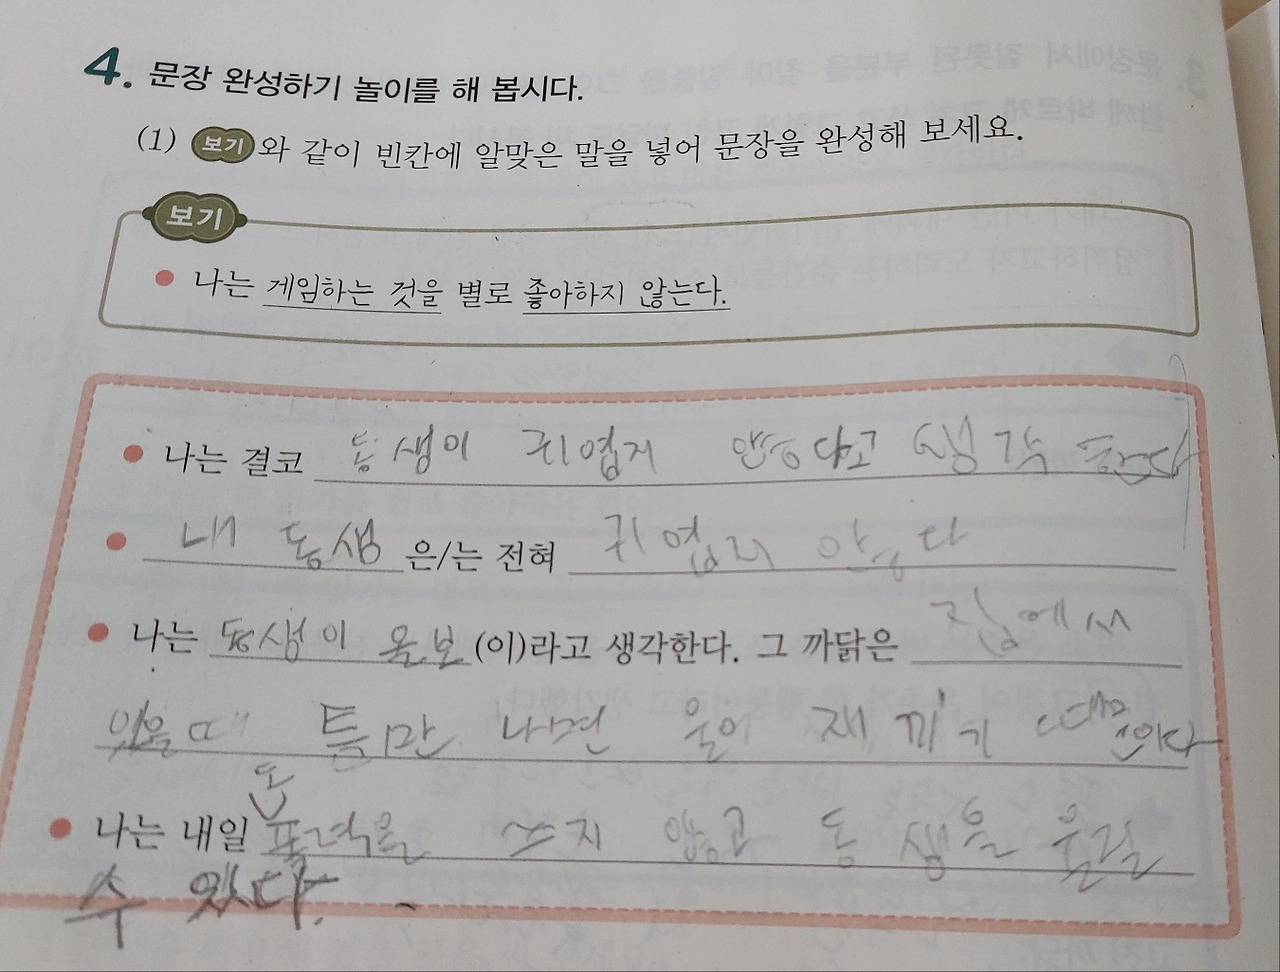 4. 문장 완성하기 놀이를 해 봅시다.
(1) 보기 와 같이 빈칸에 알맞은 말을 넣어 문장을 완성해 보세요.
보기
나는 게임하는 것을 별로 좋아하지 않는다.
나는 결코 동생이 귀엽지 안승다고 생각 한다
내 동생 은/는 전혀 귀엽지 안승다
나는 동생이 울보 (이)라고 생각한다. 그 까닭은 집에서
있을 때 틈만 나면 울어 재끼기 때문이다
나는 내일 도
폭력을 쓰지 않고 동생을 울릴
수 있다.